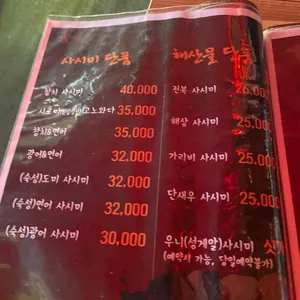 사시미 단품
참치 사시미 40,000
고노와다 35,000
참치&연어 35,000
광어&연어 32,000
(숙성)도미 사시미 32,000
(숙성)연어 사시미 32,000
(숙성)광어 사시미 30,000
해산물 단품
전복 사시미
해삼 사시미 25,000
가리비 사시미 25,000
단새우 사시미 25,000
우니(성게알)사시미
(예약시 가능, 당일예약불가)